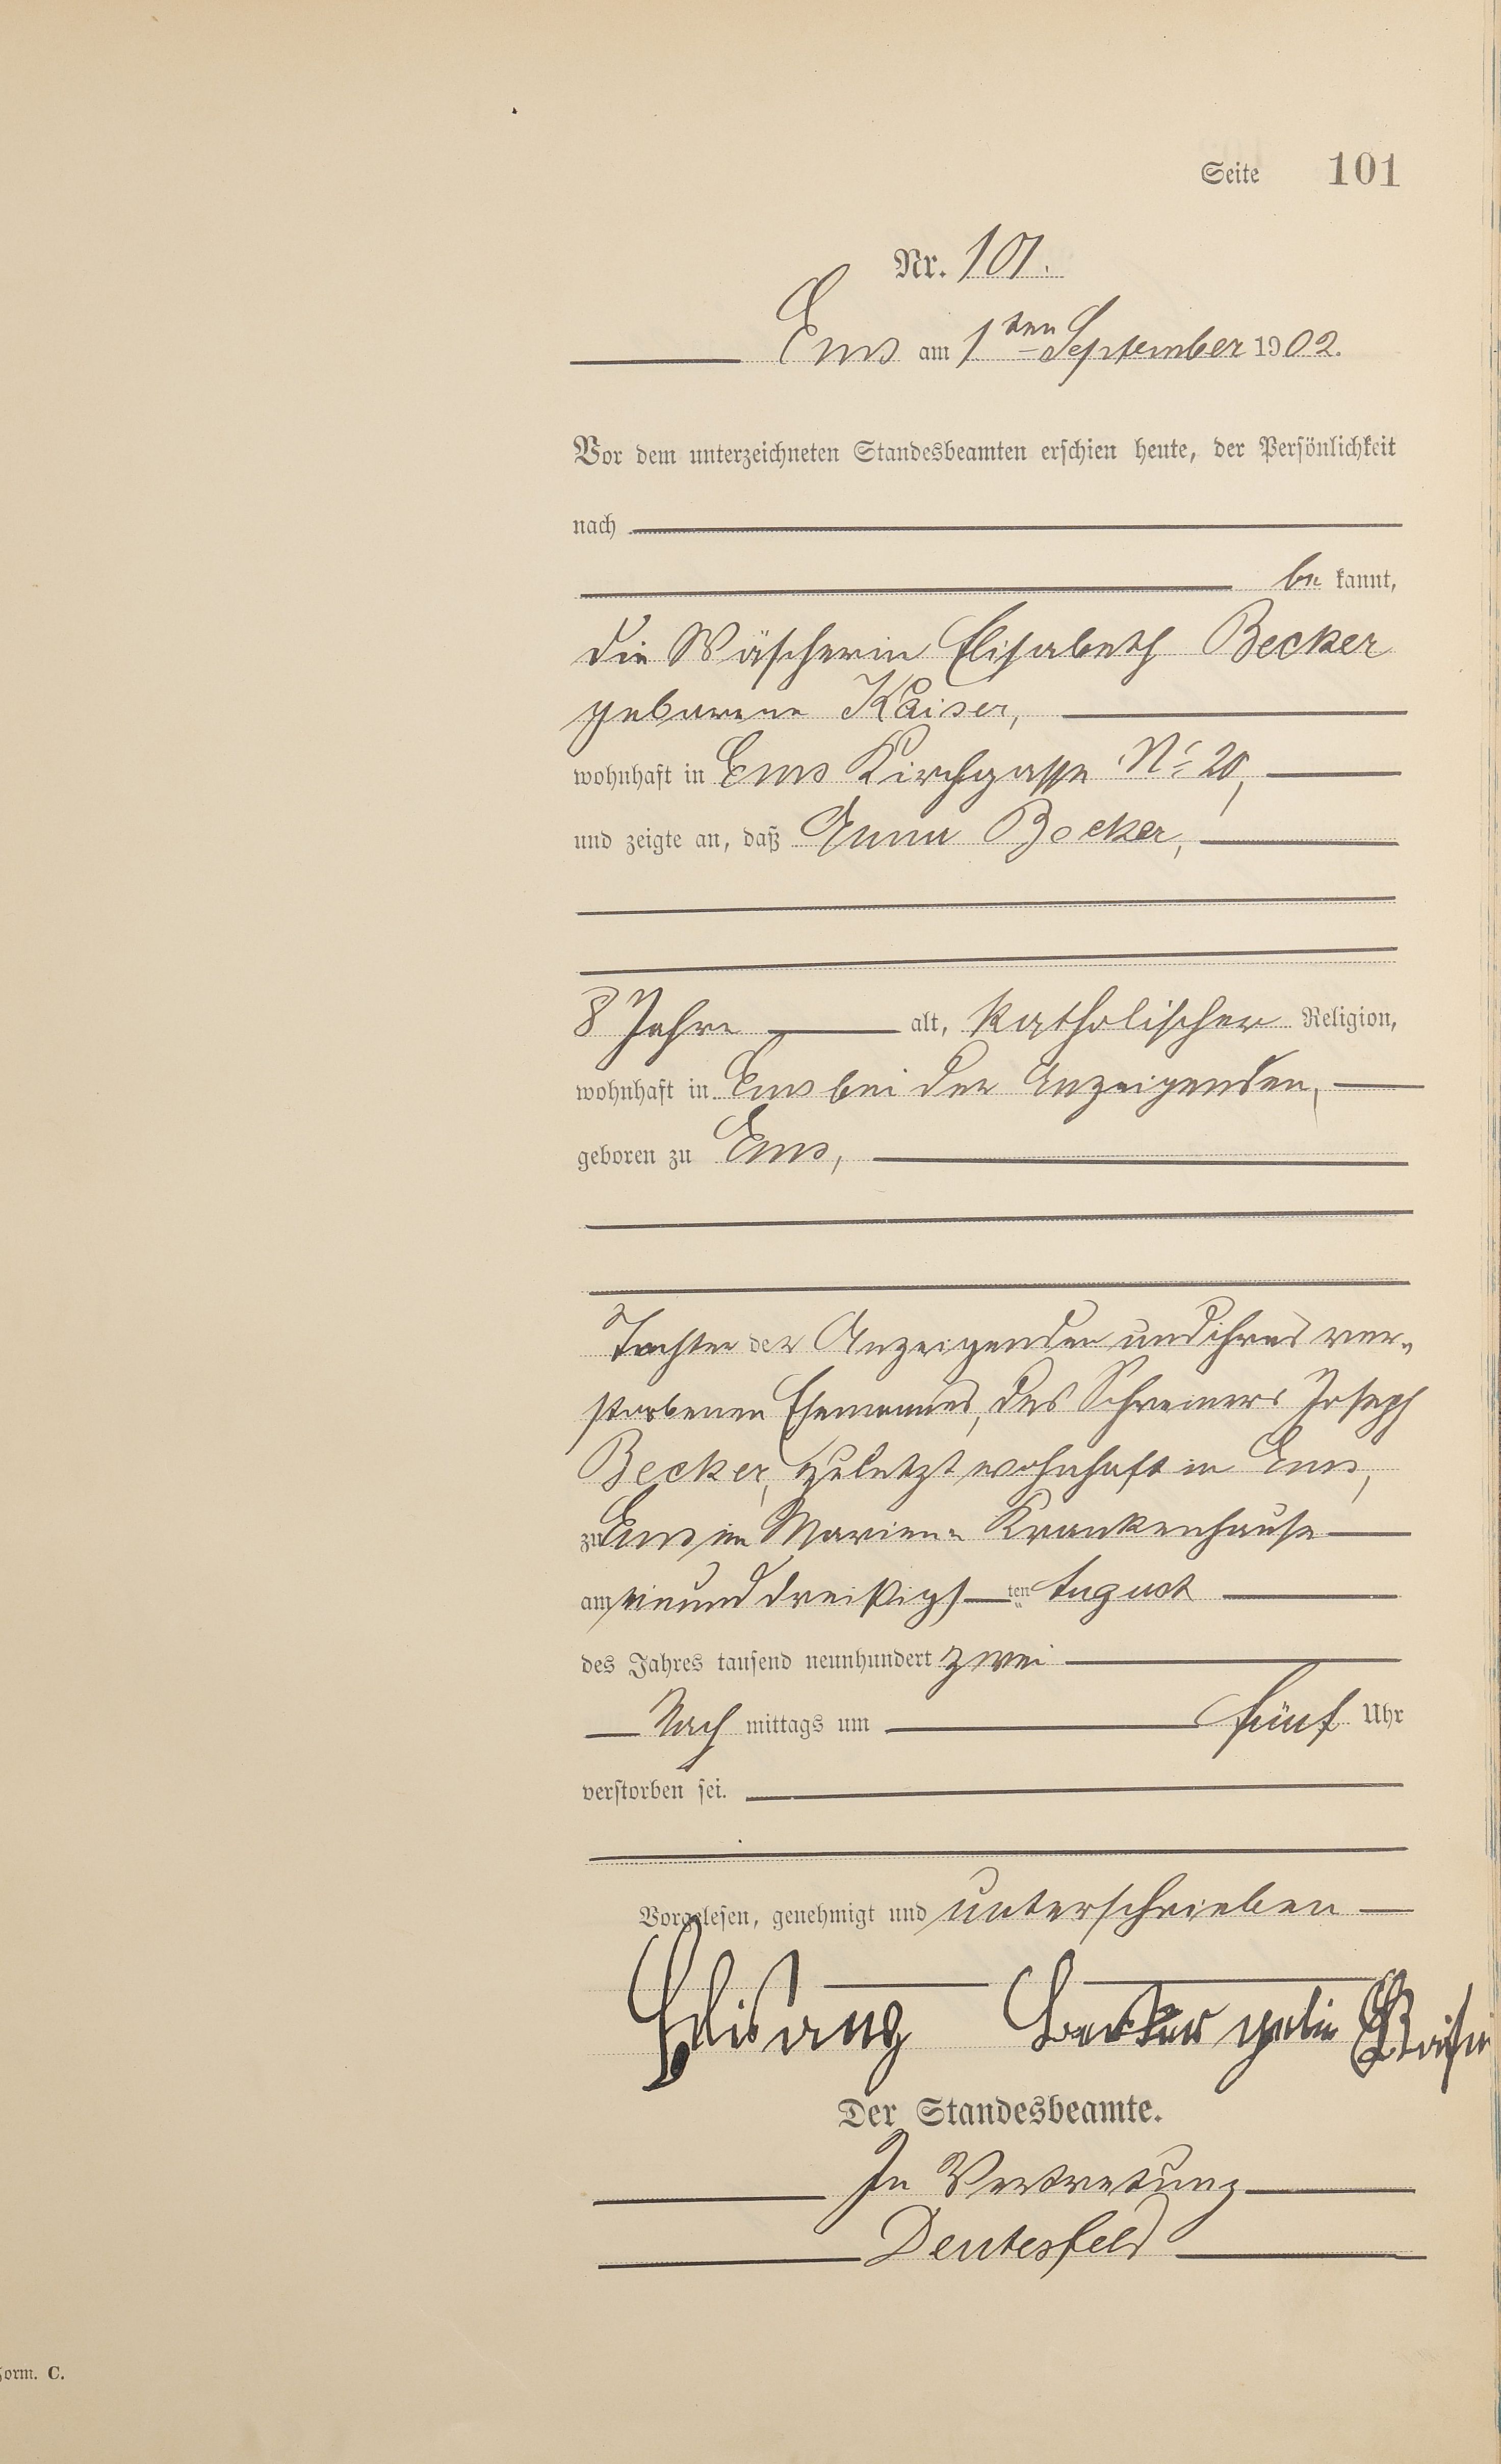 Seite 101
Nr. 101.
Ems am 1ten September 1902.
Vor dem unterzeichneten Standesbeamten erschien heute, der Persönlichkeit
nach
be kannt,
die Wäscherin Elisabeth Becker
geborene Kaiser,
wohnhaft in Ems Kirchgasse No 20,
und zeigte an, daß Anna Becker,
8 Jahre alt, katholischer Religion,
wohnhaft in Ems bei der Anzeigenden,
geboren zu Ems,
Tochter der Anzeigenden und ihres ver-
storbenen Ehemannes, des Schreiners Joseph
Becker, zuletzt wohnhaft in Ems,
zu Ems im Marien- Krankenhause
am einunddreißigsten August
des Jahres tausend neunhundert zwei
Nach mittags um fünf Uhr
verstorben sei.
Vorgelesen, genehmigt und unterschrieben
Becker
Der Standesbeamte.
In Vertretung
Deutesfeld
Form. C.